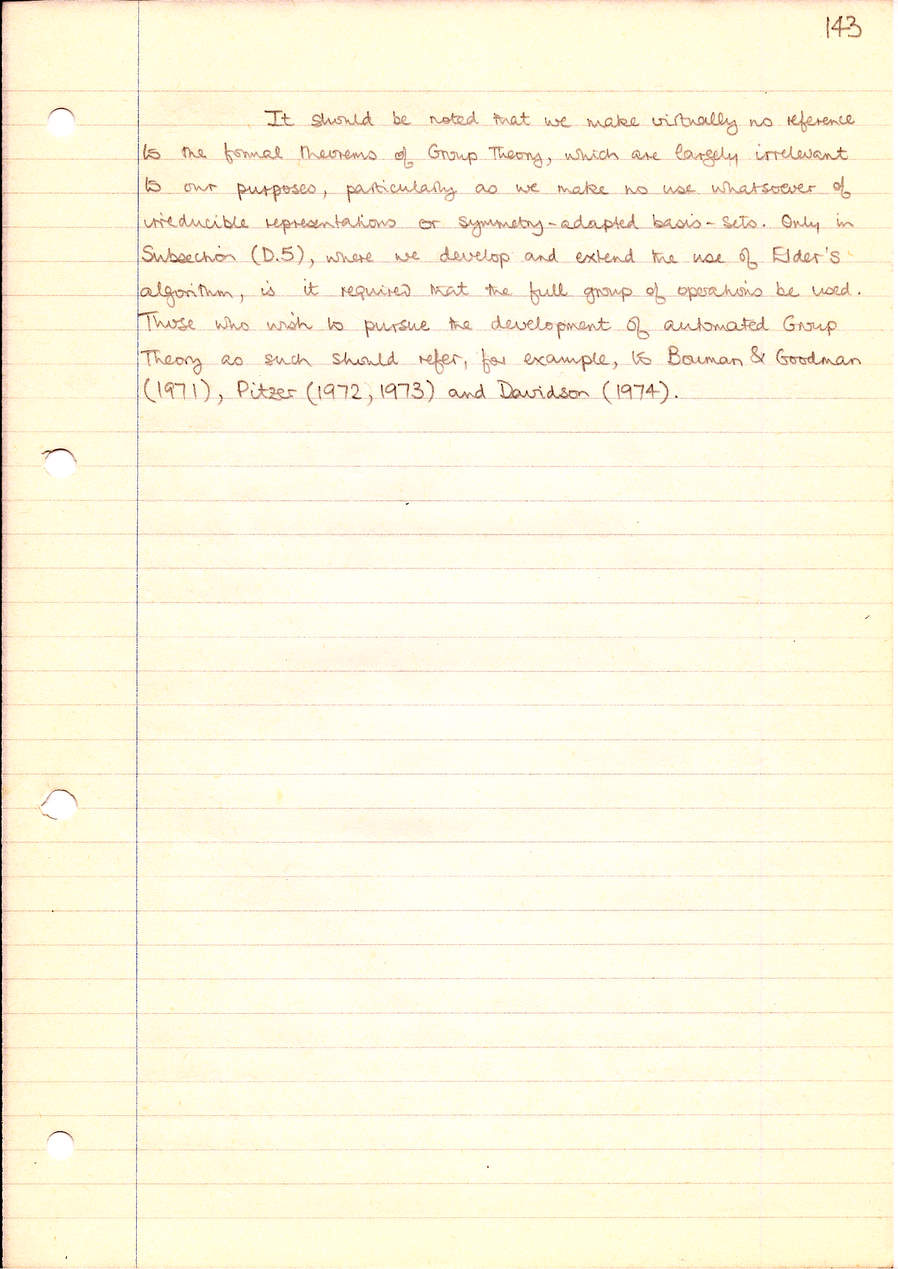 143
It should be noted that we make virtually no reference
to the formal theorems of Group Theory, which are largely irrelevant
to our purposes, particularly as we make no use whatsoever of
irreducible representations or symmetry-adapted basis-sets. Only in
Subsection (D.5), where we develop and extend the use of Elder's
algorithm, is it required that the full group of operations be used.
Those who wish to pursue the development of automated Group
Theory as such should refer, for example, to Bouman & Goodman
(1971), Pitzer (1972, 1973) and Davidson (1974).